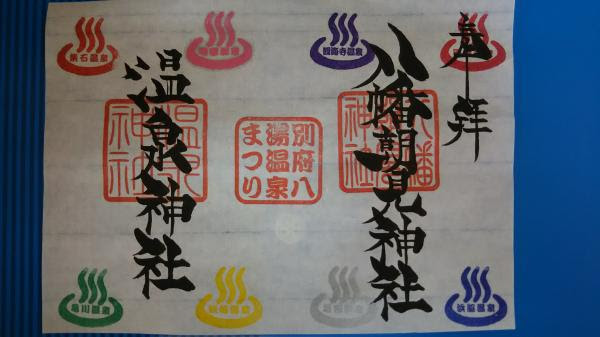 奉拝
八幡朝見神社
別府八
湯温泉
まつり
温泉神社
温泉
神社
柴石温泉
観海寺温泉
亀川温泉
浜脇温泉